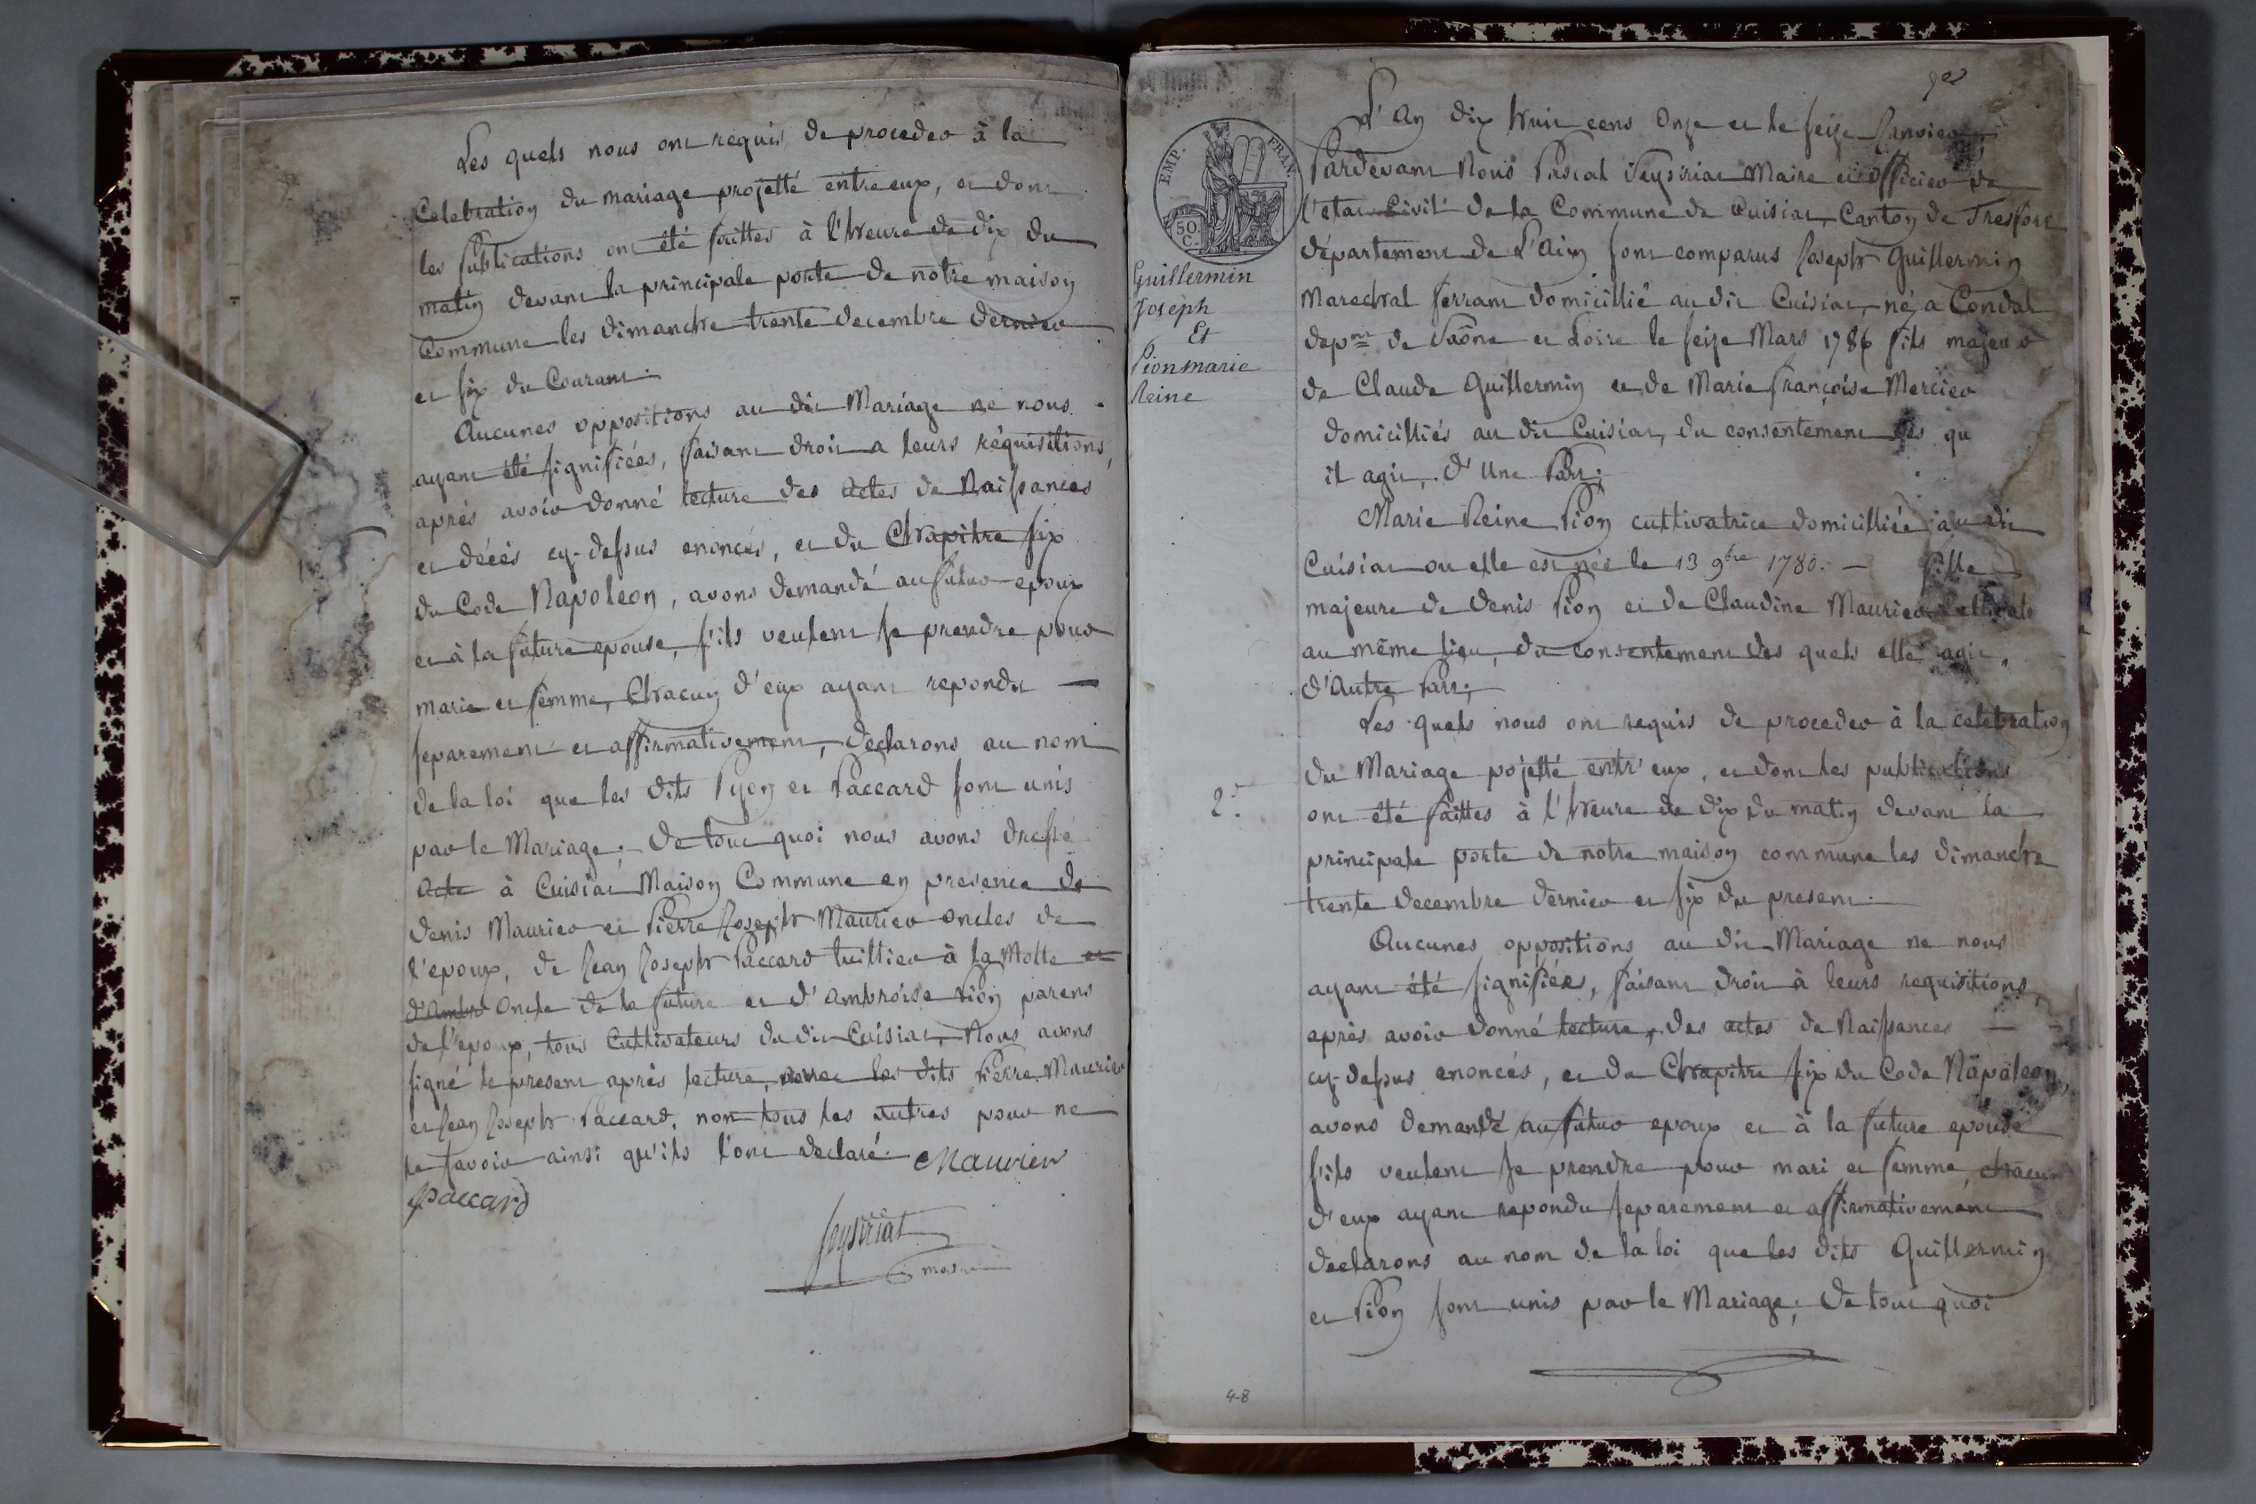 Les quels nous ont requis de proceder à la
Celebration du mariage projetté entre eux, et dont
les publications ont été faittes à l'heure de dix du
matin devant la principale porte de notre maison
Commune les dimanche trente decembre dernier
et six du Courant.
Aucunes oppositions au dit Mariage ne nous
ayant été signifiées, faisant droit a leurs réquisitions,
aprés avoir donné lecture des actes de Naissances
et décés cy-dessus enoncés, et du Chapitre six
du Code Napoleon, avons demandé au futur epoux
et à la future epouse, s'ils veulent se prendre pour
marie et femme, Chacun d'eux ayant repondu —
separement et affirmativement, declarons au nom
de la loi que les dits Pyon et Paccard sont unis
par le Mariage; De tout quoi nous avons dressé
acte à Cuisiat Maison Commune en presence de
denis Maurier et Pierre Joseph Maurier oncles de
l'epoux, de Jean Joseph Paccard tuillier à la Motte et
d'Ambr oncle de la future et d'ambroise Pion parens
de l'epoux, tous Cultivateurs du dit Cuisiat, Nous avons
signé le present aprés lecture, les dits Pierre Maurier
et Jean Joseph Paccard, non tous les autres pour ne
le savoir ainsi qu'ils l'ont declaré. Maurier
Paccard
Seysiriat
maire
EMP. FRAN.
50 C.
Guillermin
Joseph
Et
Pion marie
Reine
2.e
48
L'An dix huit cens Onze et le seize Janvier
Pardevant Nous Pascal Seysiriat Maire et officier de
l'etat Civil de la Commune de Cuisiat, Canton de Tresfort
département de L'Ain sont comparus Joseph Guillermin
Marechal ferrant domicillié au dit Cuisiat, né a Condal
dep.nt de Saône et Loire le seize Mars 1786 fils majeur
de Claude Guillermin et de Marie françoise Mercier
domicilliés au dit Cuisiat, du consentement des qu
il agit, d'Une Part;
Marie Reine Pion cultivatrice domicilliée au dit
Cuisiat ou elle est née le 13 9bre 1780. — fille
majeure de denis Pion et de Claudine Maurier
au même lieu, du consentement des quels elle agit,
d'Autre Part;
Les quels nous ont requis de proceder à la celebration
du Mariage pojetté entr'eux, et dont les publications
ont été faittes à l'heure de dix du matin devant la
principale porte de notre maison commune les dimanche
trente decembre dernier et six du present.
Aucunes oppositions au dit Mariage ne nous
ayant été signifiées, faisant droit à leurs requisitions,
aprés avoir donné lecture, des actes de Naissances —
cy-dessus enoncés, et du Chapitre six du Code Napoleon,
avons demandé au futur epoux et à la future epouse
s'ils veulent se prendre pour mari et femme, chacun
d'eux ayant repondu separement et affirmativement
declarons au nom de la loi que les dits Guillermin
et Pion sont unis par le Mariage; De tout quoi